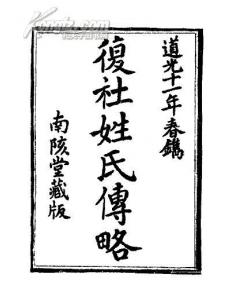 道光十一年春鐫
復社姓氏傳略
南陔堂藏版